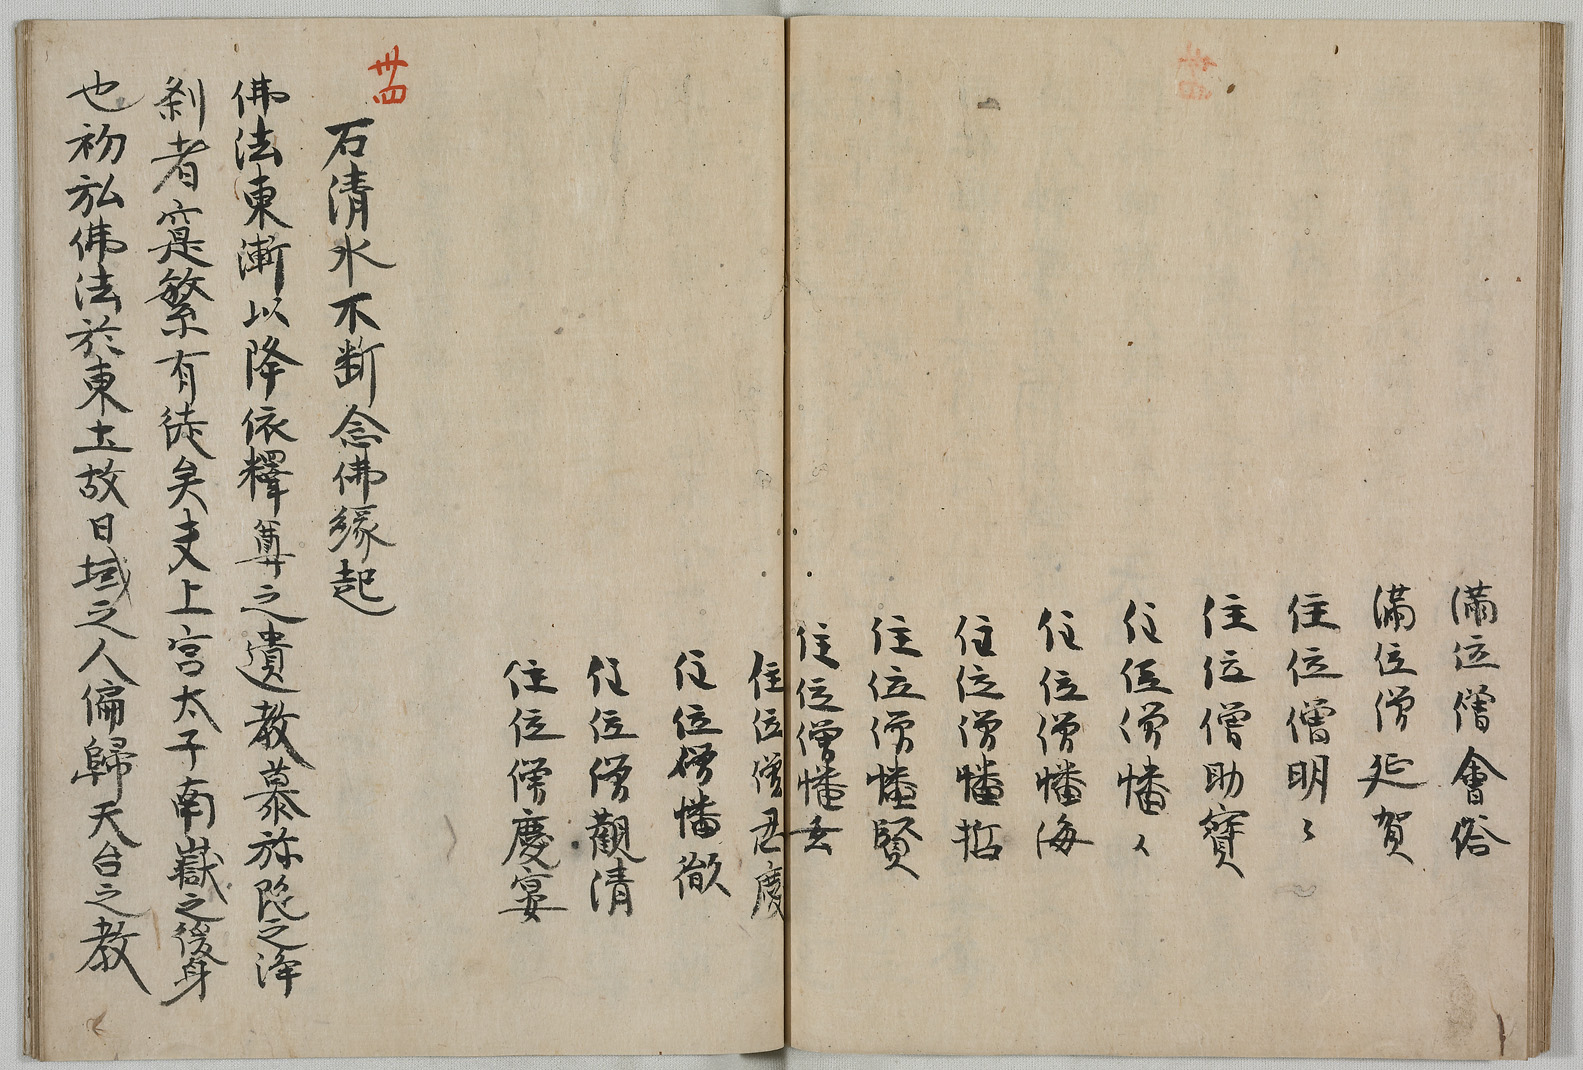 滿位僧會俗
滿位僧延賀
住位僧明〻
住位僧助寶
住位僧幡〻
住位僧幡海
住位僧幡哲
住位僧幡賢
住位僧幡
住位僧慶
住位僧幡徹
住位僧觀清
住位僧慶宴
卌四
石清水不断念佛縁起
佛法東漸以降依釋尊之遺教慕弥陁之淨
刹者寔繁有徒矣夫上宮太子南嶽之後身
也初弘佛法於東土故日域之人偏歸天台之教